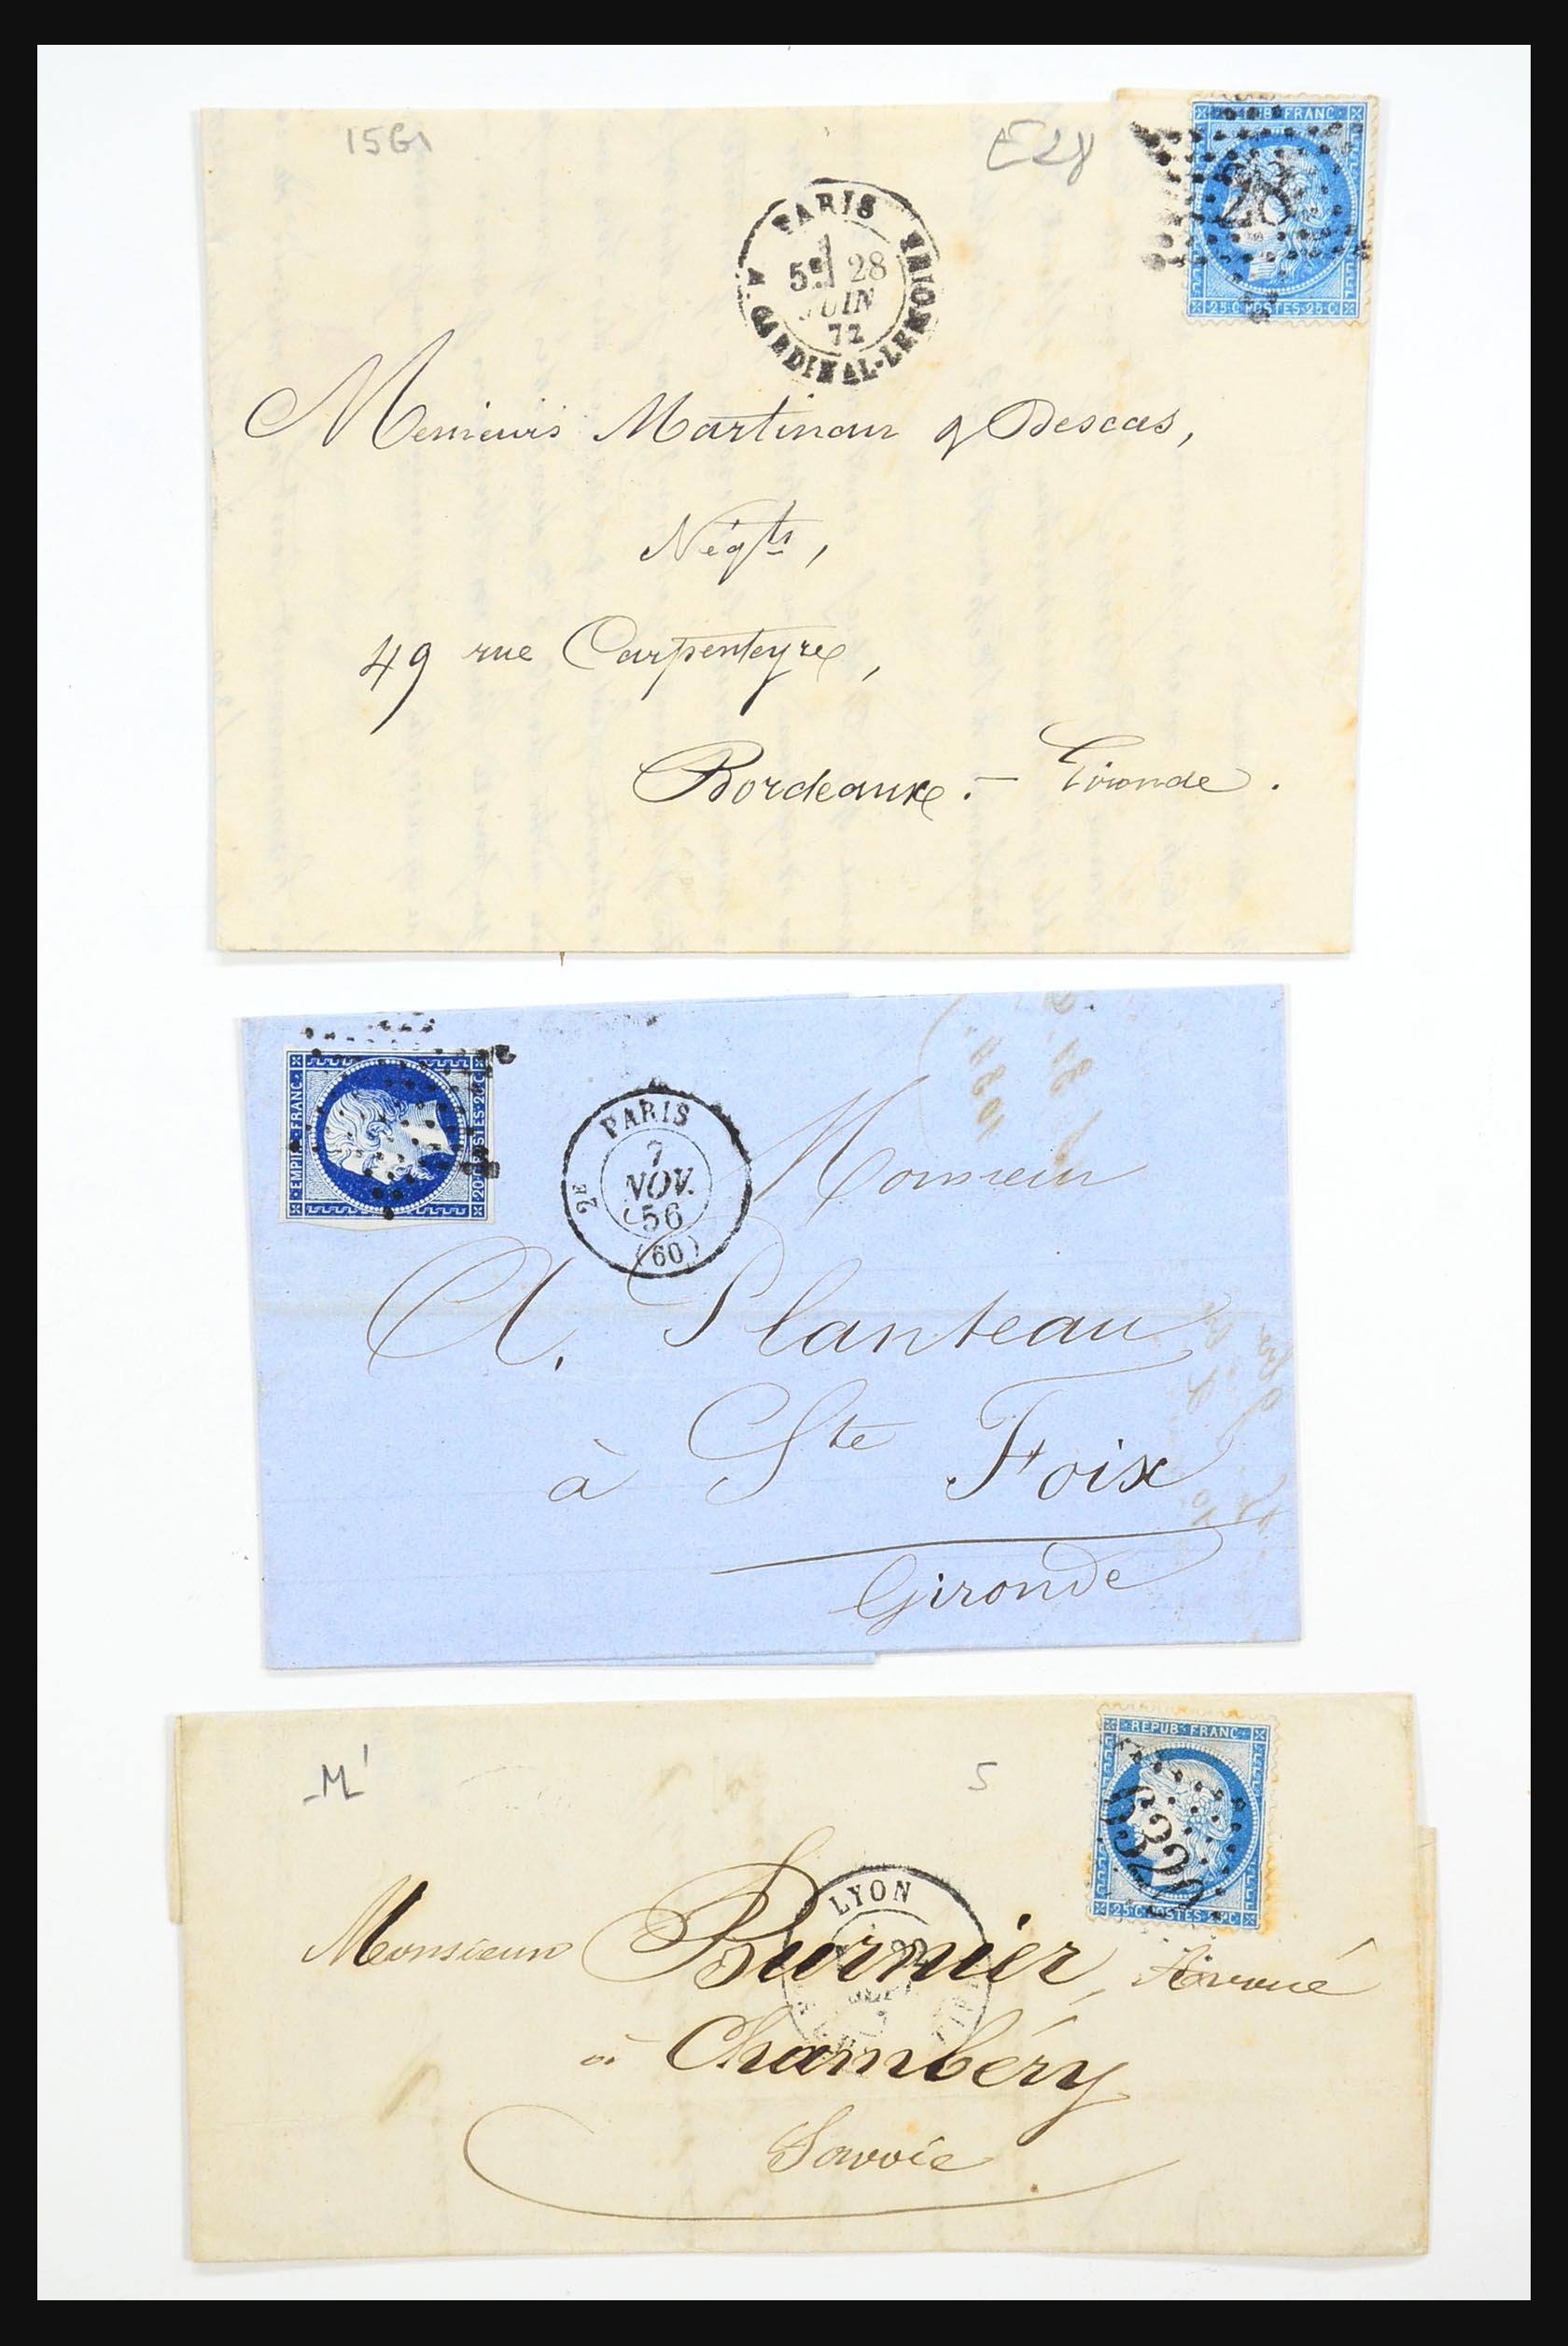 15G1
E28
REPUB FRANC
28
25 C POSTES 25 C
PARIS
5E 28
JUIN
72
R. CARDINAL-LEMOINE
Messieurs Martinau & Descas,
Négts,
49 rue Carpenteyre,
Bordeaux.- Gironde.
EMPIRE FRANC
20 C POSTES 20 C
PARIS
2E
7
NOV.
56
(60)
Monsieur
A. Planteau
à Ste Foix
Gironde
M'
5
REPUB FRANC
6324
25 C POSTES 25 C
LYON
Monsieur Burnier, Avoué
à Chambéry
Savoie